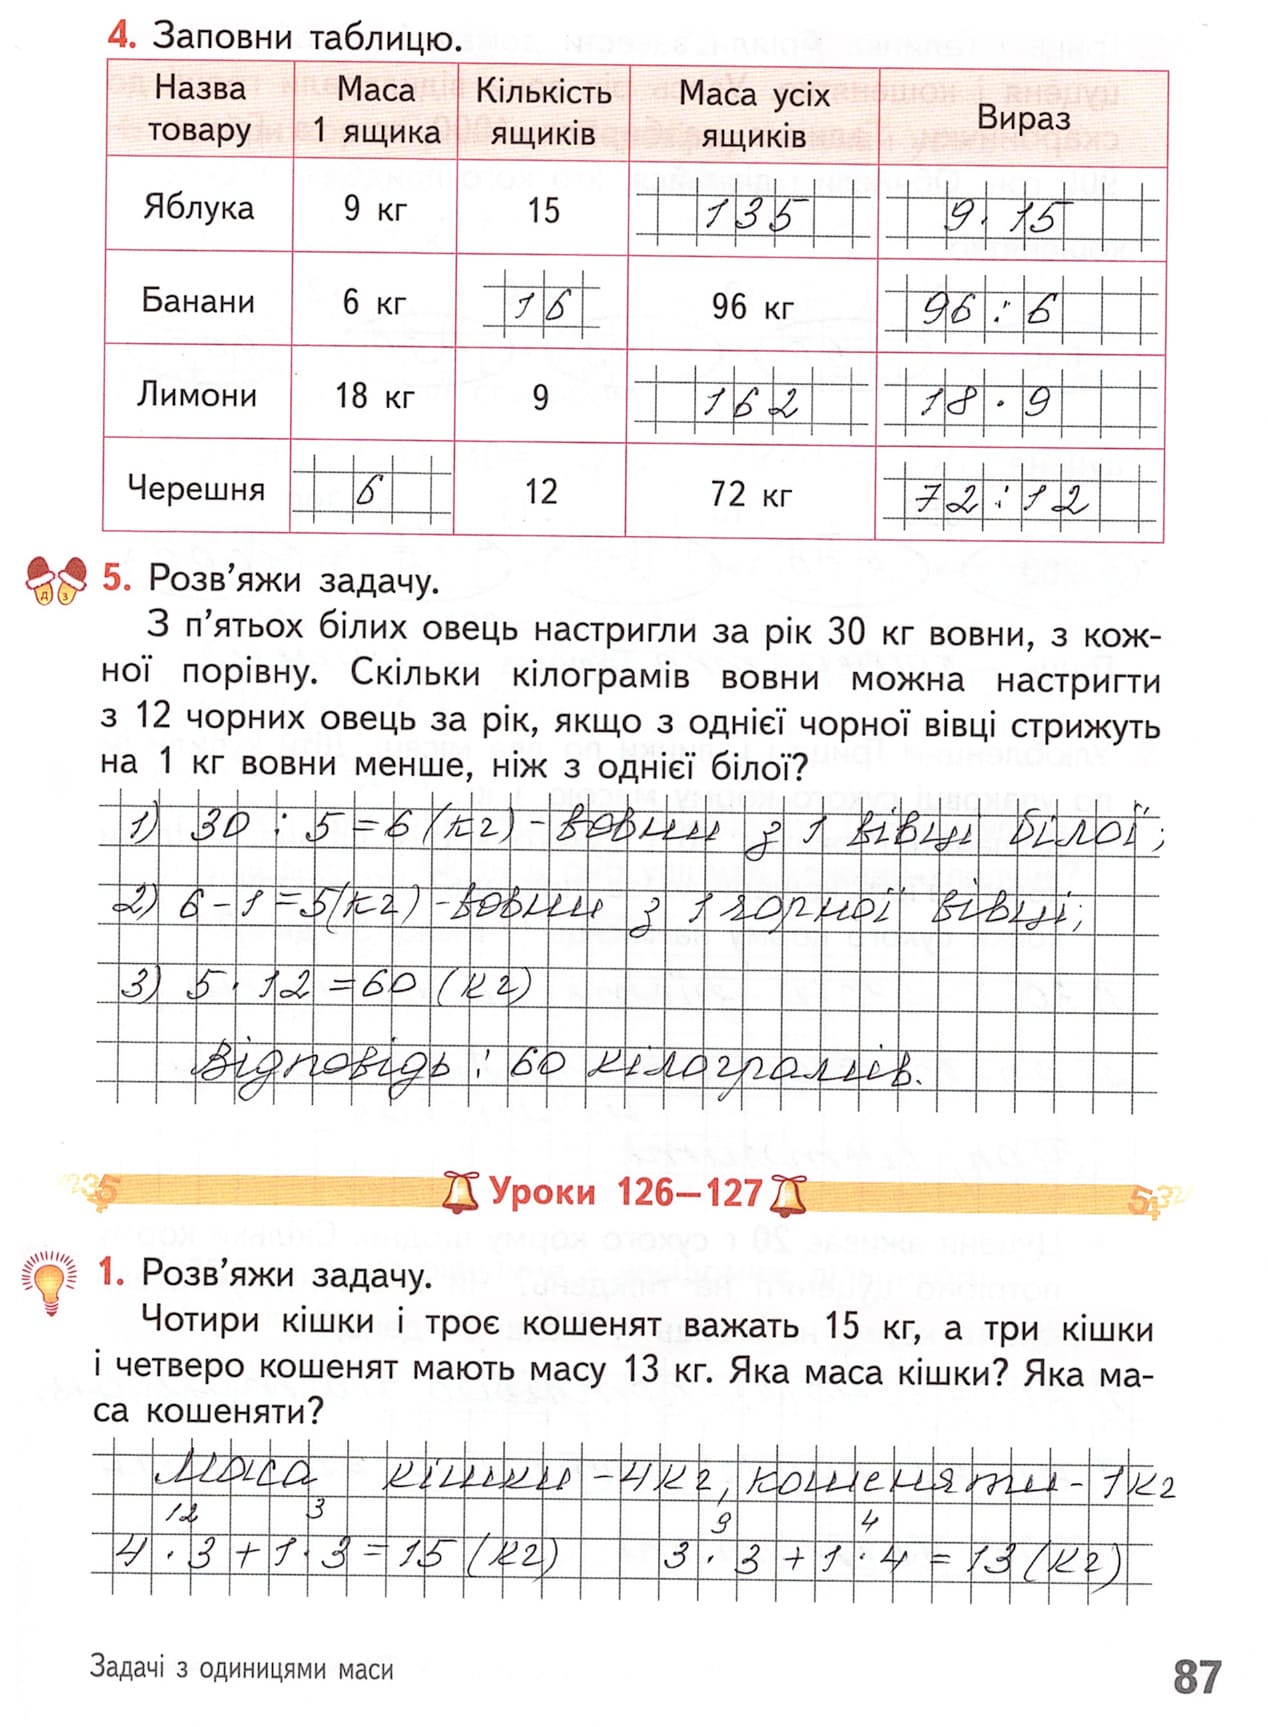 4. Заповни таблицю.
Назва товару | Маса 1 ящика | Кількість ящиків | Маса усіх ящиків | Вираз
Яблука | 9 кг | 15 | 135 | 9 · 15
Банани | 6 кг | 16 | 96 кг | 96 : 6
Лимони | 18 кг | 9 | 162 | 18 · 9
Черешня | 6 | 12 | 72 кг | 72 : 12
д з
5. Розв'яжи задачу.
З п'ятьох білих овець настригли за рік 30 кг вовни, з кож-
ної порівну. Скільки кілограмів вовни можна настригти
з 12 чорних овець за рік, якщо з однієї чорної вівці стрижуть
на 1 кг вовни менше, ніж з однієї білої?
1) 30 : 5 = 6 (кг) - вовни з 1 вівці білої;
2) 6 - 1 = 5 (кг) - вовни з 1 чорної вівці;
3) 5 · 12 = 60 (кг)
Відповідь : 60 кілограмів.
Уроки 126–127
1. Розв'яжи задачу.
Чотири кішки і троє кошенят важать 15 кг, а три кішки
і четверо кошенят мають масу 13 кг. Яка маса кішки? Яка ма-
са кошеняти?
Маса кішки - 4 кг, кошеняти - 1 кг
12 3 9 4
4 · 3 + 1 · 3 = 15 (кг) 3 · 3 + 1 · 4 = 13 (кг)
Задачі з одиницями маси
87